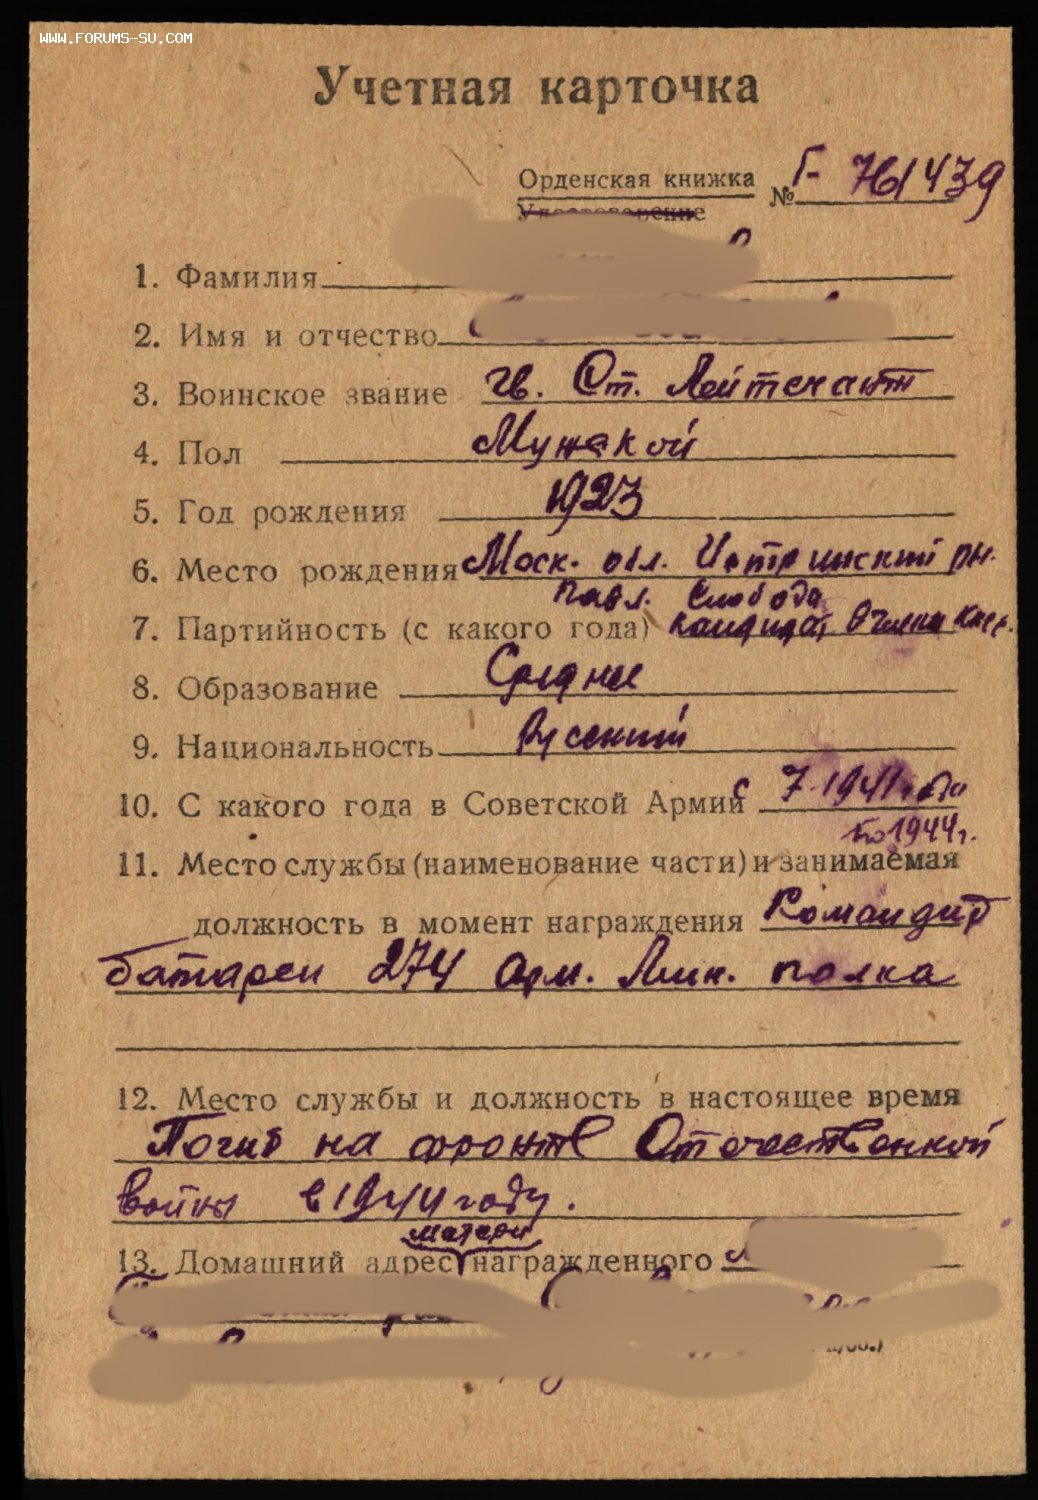 WWW.FORUMS-SU.COM
Учетная карточка
Орденская книжка
Удостоверение
№ Г- 761439
1. Фамилия
2. Имя и отчество
3. Воинское звание гв. Ст. Лейтенант
4. Пол Мужской
5. Год рождения 1923
6. Место рождения Моск. обл. Истринский рн.
Павл. Слобода
7. Партийность (с какого года) кандидат в члены
8. Образование Среднее
9. Национальность Русский
10. С какого года в Советской Армии с 7.1941г.
по 1944г.
11. Место службы (наименование части) и занимаемая
должность в момент награждения Командир
батареи 274 Арм. Мин. полка
12. Место службы и должность в настоящее время
Погиб на фронте Отечественной
войны в 1944 году.
матери
13. Домашний адрес награжденного